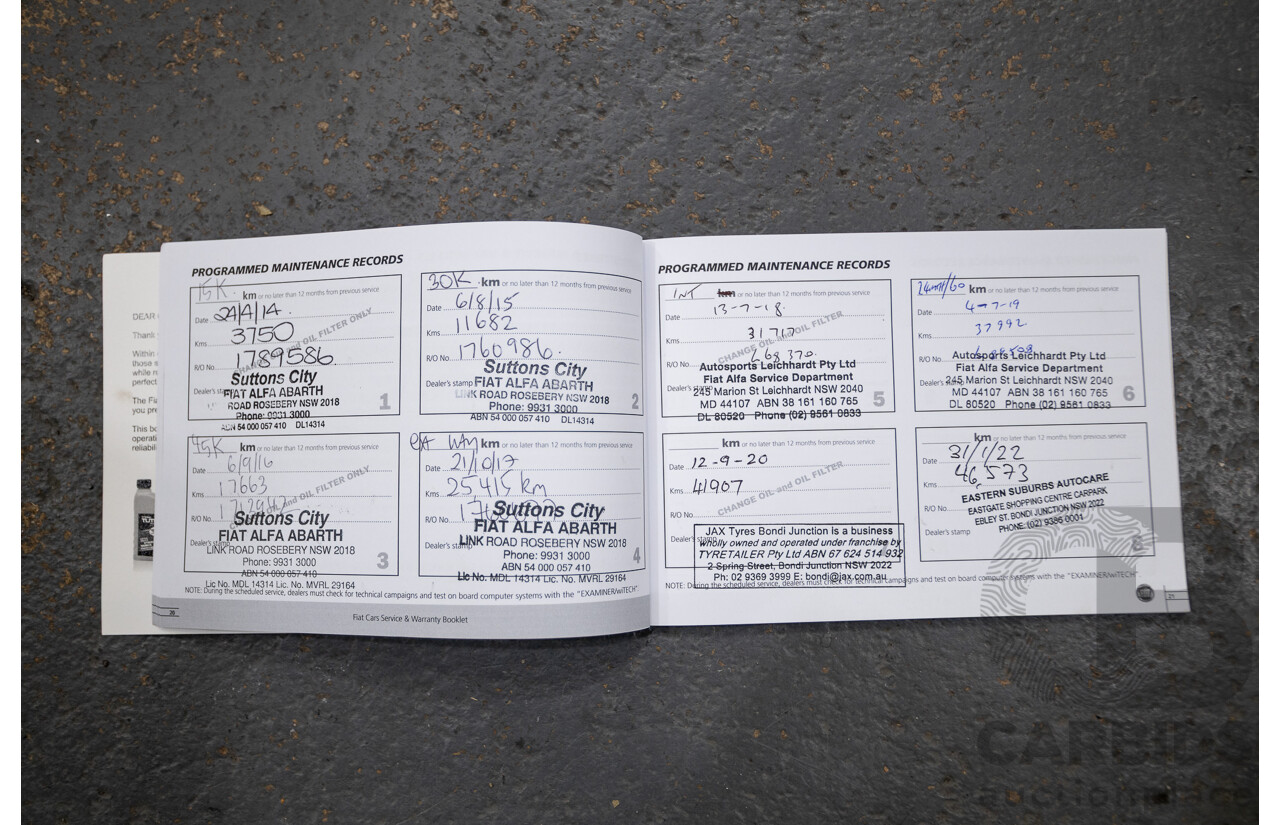 DEAR
Thank
Within
those s
while re
perfect
The Fia
you pre
This bo
operati
reliabil
PROGRAMMED MAINTENANCE RECORDS
15K. km or no later than 12 months from previous service
Date 24/4/14.
Kms 3750
CHANGE OIL and OIL FILTER ONLY
R/O No. 1789586
Dealer's stamp
Suttons City
FIAT ALFA ABARTH
ROAD ROSEBERY NSW 2018
Phone: 9931 3000
ABN 54 000 057 410 DL14314
1
30K km or no later than 12 months from previous service
Date 6/8/15
Kms 11682
R/O No. 1760986.
Dealer's stamp
Suttons City
FIAT ALFA ABARTH
LINK ROAD ROSEBERY NSW 2018
Phone: 9931 3000
ABN 54 000 057 410 DL14314
2
45K km or no later than 12 months from previous service
Date 6/9/16
Kms 17663
CHANGE OIL and OIL FILTER ONLY
R/O No.
Dealer's stamp
Suttons City
FIAT ALFA ABARTH
LINK ROAD ROSEBERY NSW 2018
Phone: 9931 3000
ABN 54 000 057 410
Lic No. MDL 14314 Lic. No. MVRL 29164
3
km or no later than 12 months from previous service
Date 21/10/17
Kms 25415 km
R/O No.
Dealer's stamp
Suttons City
FIAT ALFA ABARTH
LINK ROAD ROSEBERY NSW 2018
Phone: 9931 3000
ABN 54 000 057 410
Lic No. MDL 14314 Lic. No. MVRL 29164
4
NOTE: During the scheduled service, dealers must check for technical campaigns and test on board computer systems with the "EXAMINER/wiTECH".
20
Fiat Cars Service & Warranty Booklet
PROGRAMMED MAINTENANCE RECORDS
INT km or no later than 12 months from previous service
Date 13-7-18.
Kms 31717
CHANGE OIL and OIL FILTER
R/O No. 668370.
Dealer's stamp
Autosports Leichhardt Pty Ltd
Fiat Alfa Service Department
245 Marion St Leichhardt NSW 2040
MD 44107 ABN 38 161 160 765
DL 80520 Phone (02) 9561 0833
5
24mth/60 km or no later than 12 months from previous service
Date 4-7-19
Kms 37992
R/O No.
Dealer's stamp
Autosports Leichhardt Pty Ltd
Fiat Alfa Service Department
245 Marion St Leichhardt NSW 2040
MD 44107 ABN 38 161 160 765
DL 80520 Phone (02) 9561 0833
6
km or no later than 12 months from previous service
Date 12-9-20
Kms 41907
CHANGE OIL and OIL FILTER
R/O No.
Dealer's stamp
JAX Tyres Bondi Junction is a business
wholly owned and operated under franchise by
TYRETAILER Pty Ltd ABN 67 624 514 932
2 Spring Street, Bondi Junction NSW 2022
Ph: 02 9369 3999 E: bondi@jax.com.au
km or no later than 12 months from previous service
Date 31/1/22
Kms 46,573
R/O No.
Dealer's stamp
EASTERN SUBURBS AUTOCARE
EASTGATE SHOPPING CENTRE CARPARK
EBLEY ST. BONDI JUNCTION NSW 2022
PHONE: (02) 9386 0001
8
NOTE: During the scheduled service, dealers must check for technical campaigns and test on board computer systems with the "EXAMINER/wiTECH".
21
CARBIDS